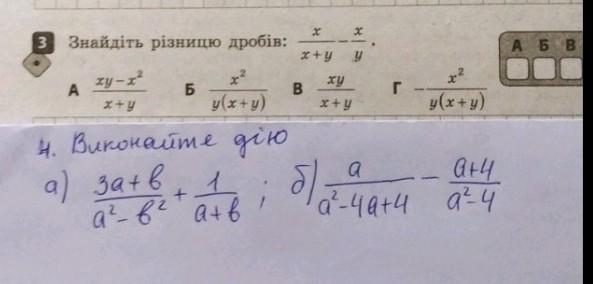 3 Знайдіть різницю дробів: x/(x+y) − x/y.
А (xy−x²)/(x+y) Б x²/(y(x+y)) В xy/(x+y) Г −x²/(y(x+y))
А Б В
4. Виконайте дію
а) (3a+b)/(a²−b²) + 1/(a+b) ; б) a/(a²−4a+4) − (a+4)/(a²−4)